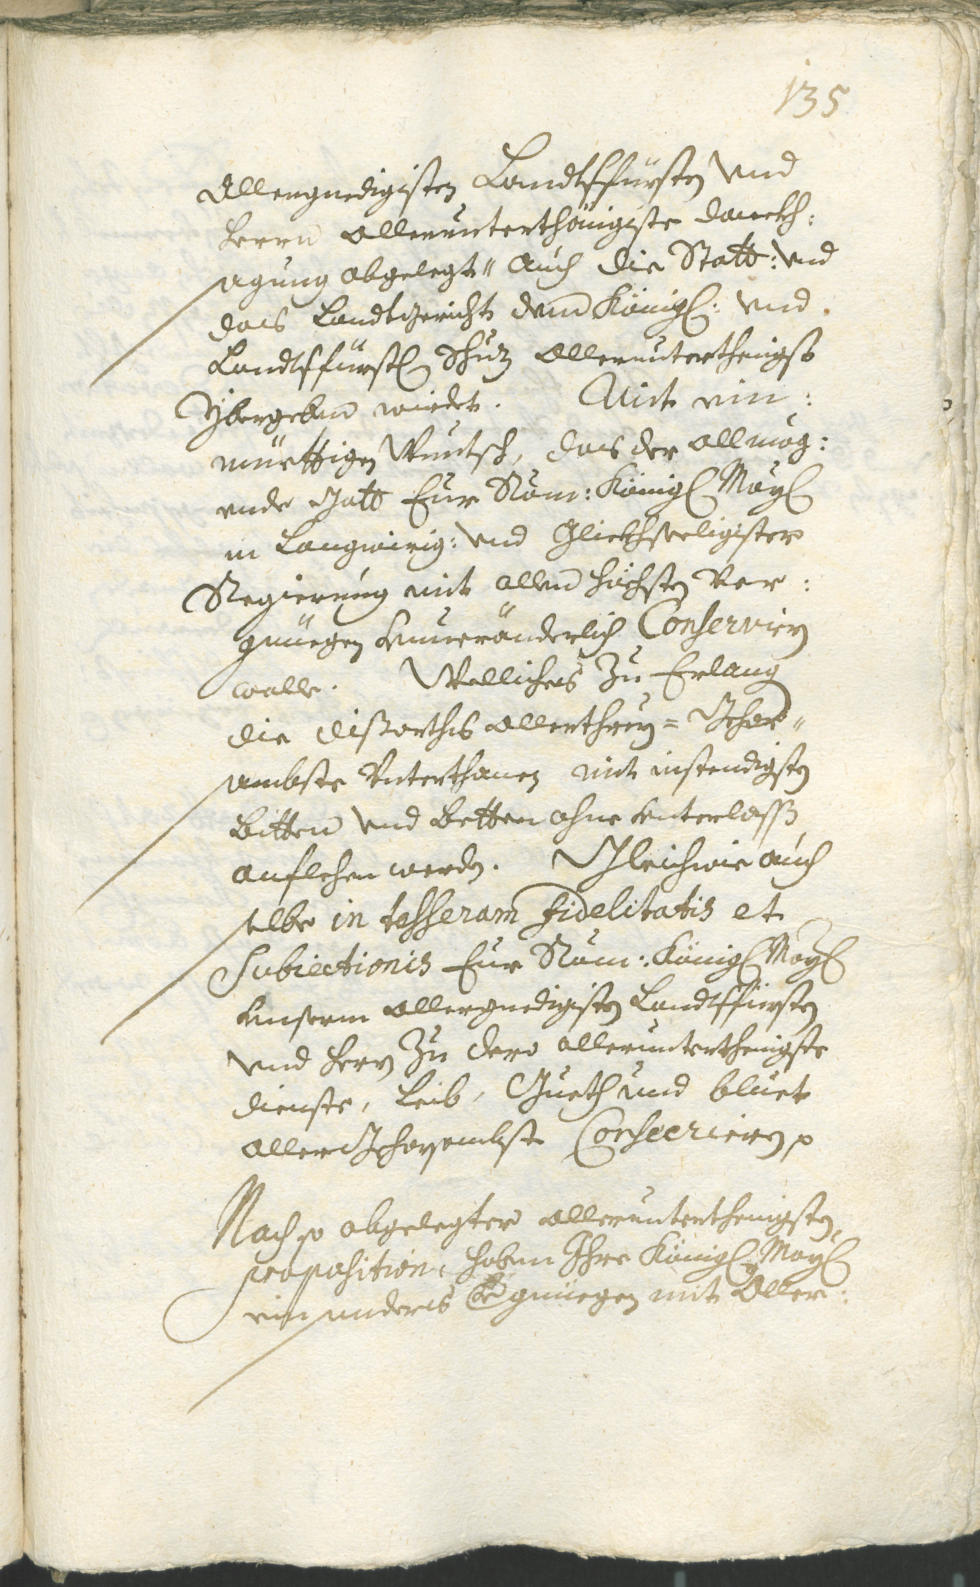 135
Allergnedigisten Landtsfürsten Vnd
herrn allerunterthänigiste danckh:
sagung abgelegt" auch die Statt: Vnd
das Landtgericht dem Königl: Vnd
Landtsfürstl Schuz allerunterthenigst
Ybergeben wirdet. Mit ein:
müettigen Wuntsch, das der allmög:
ende Gott Eur Röm: Königl Mayl
in Langwirig: Vnd Glickhseeligister
Regierung mit allen höchsten Ver:
gnüegen Unveränderlich Conserviern
wolle. Wellliches Zu Erlang
die dißorths allerthrey= Gehor"
sambste Vnterthanen mit instendigsten
Bitten Vnd Betten ohne Unterlaß
anflehen werden. Gleichwie auch
selbe in tesseram fidelitatis et
Subiectionis Eur Röm: Königl Mayl
Unserm allergnedigisten Landtsfürsten
Vnd Herrn Zu dero allerunterthenigste
dienste, Leib, Gueth Und bluet
aller Gehorsambst Consecriern
Nach so abgelegter allerunterthenigsten
proposition, haben Ihre Königl Mayl
ein sonders Begnüegen mit Aller: